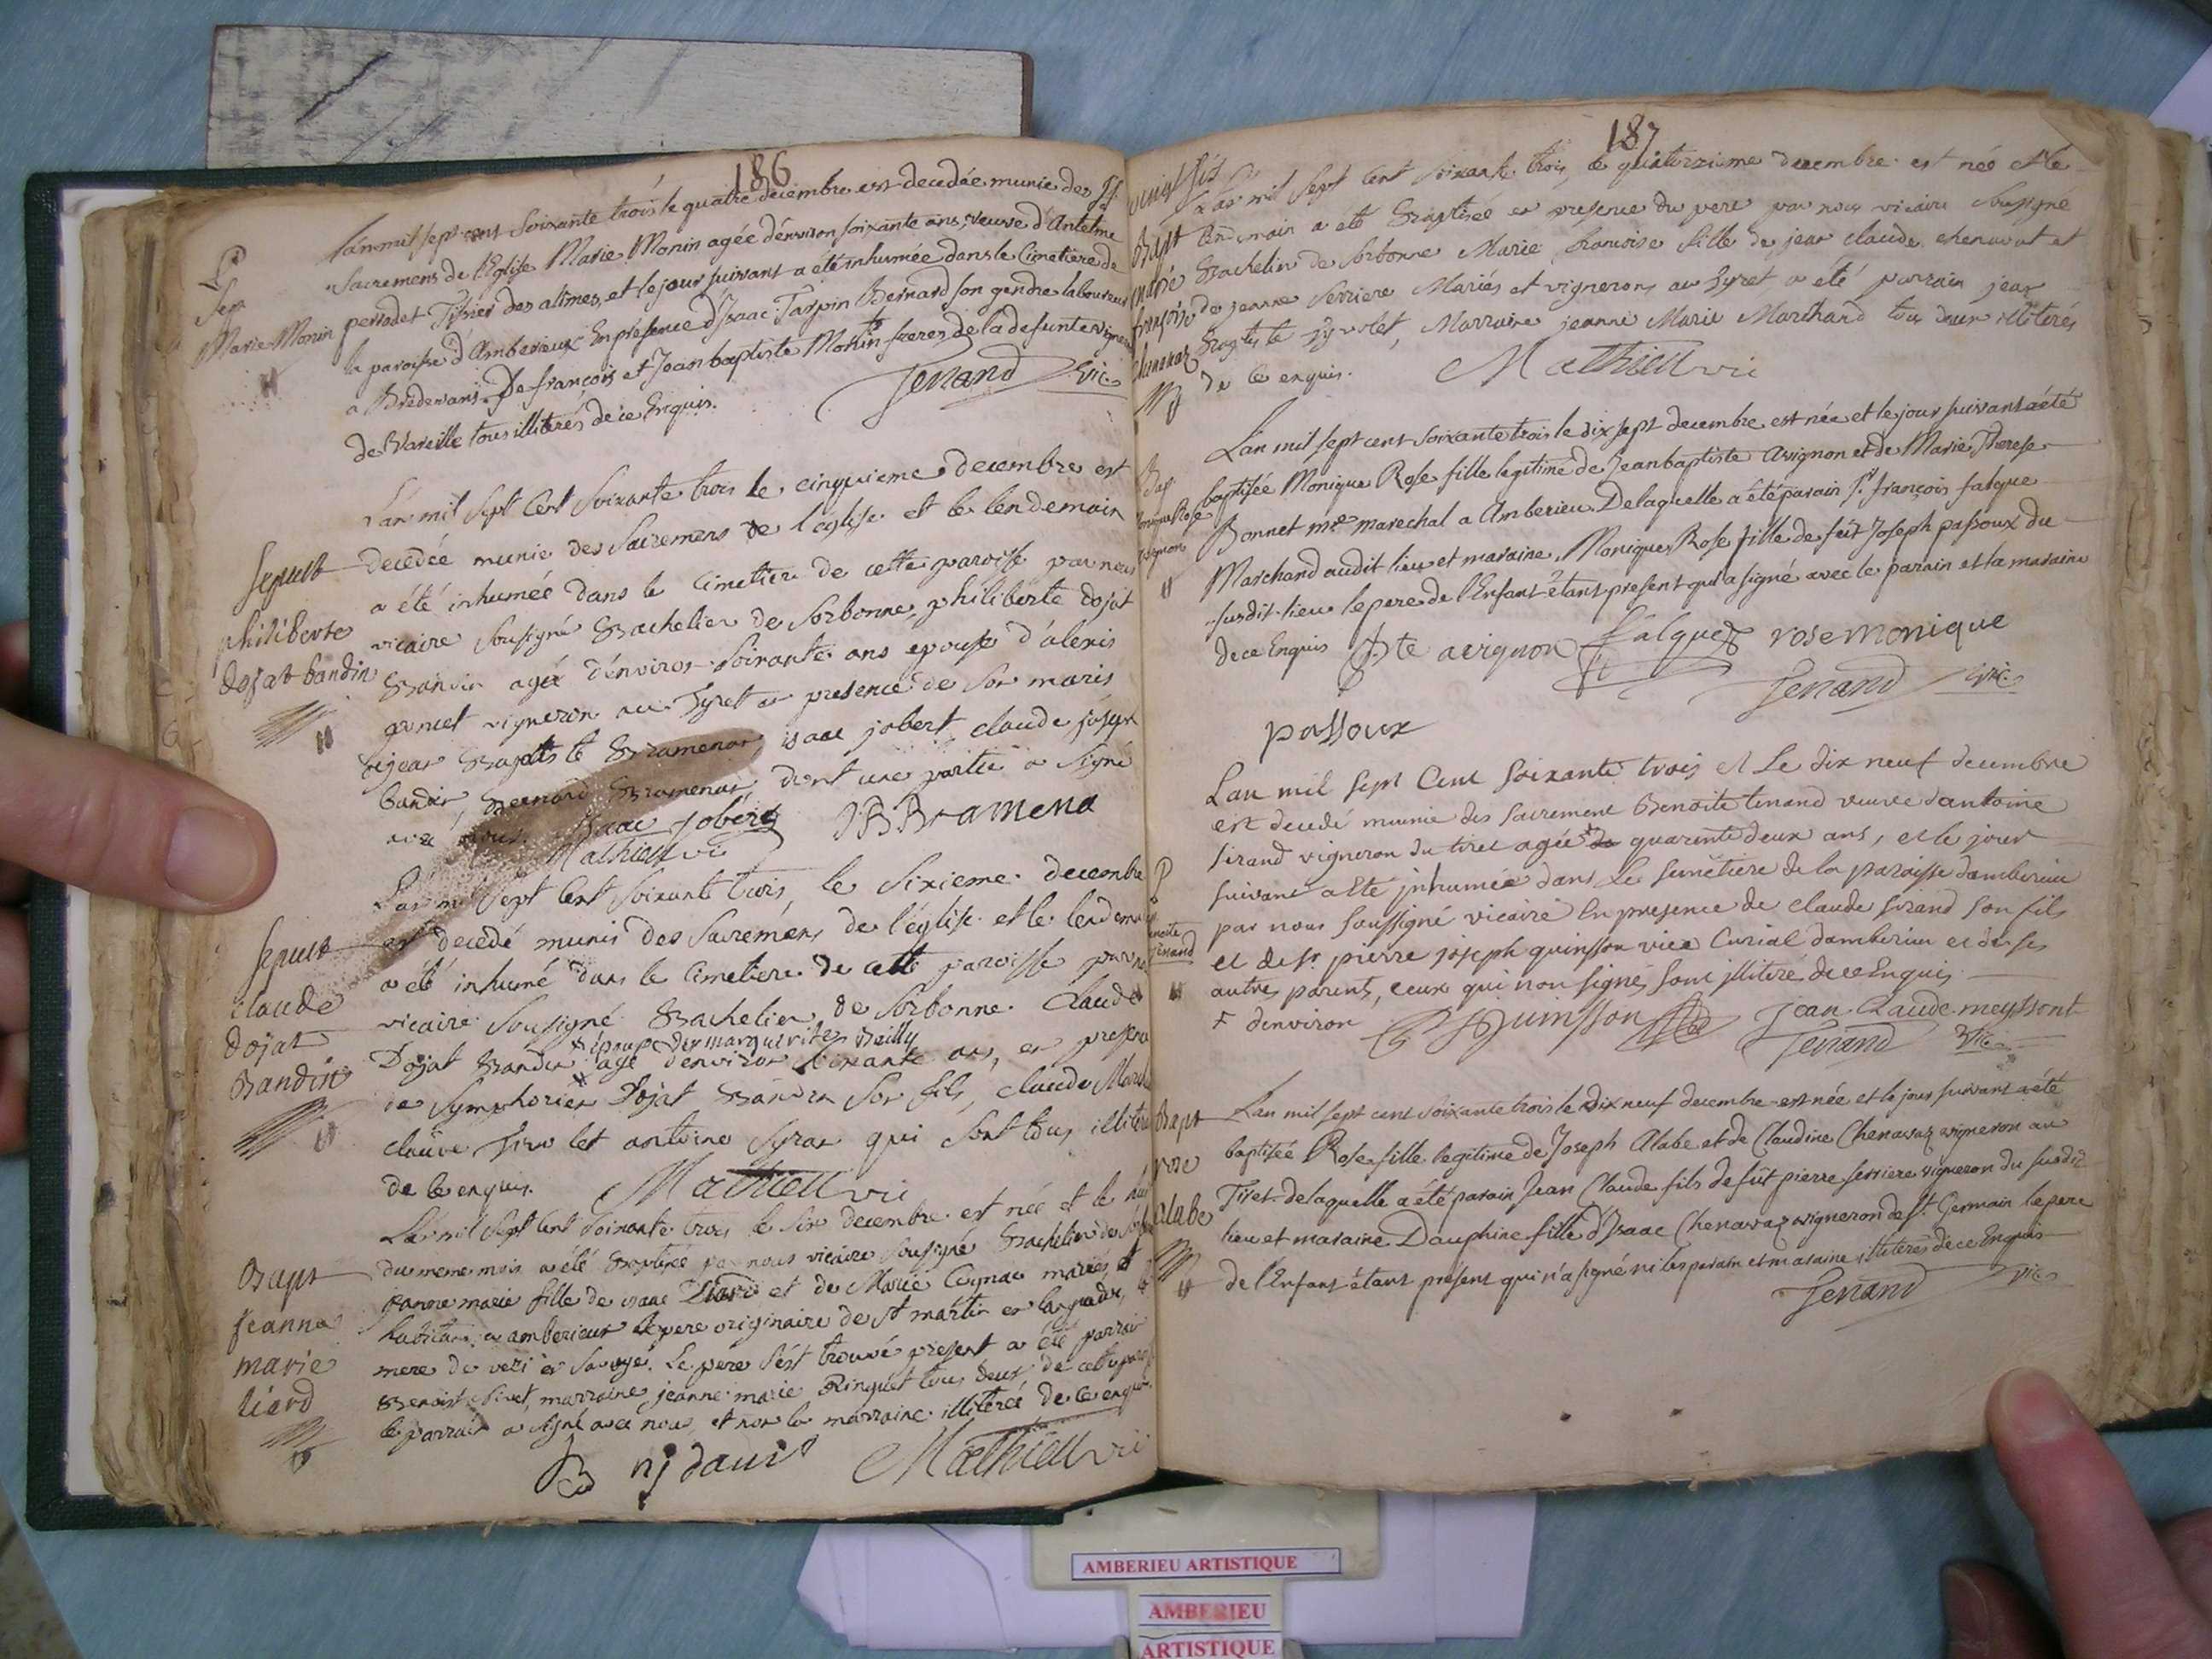 186
L'an mil sept cent soixante trois le quatre decembre est decedée munie des SS.
Sacremens de l'Eglise Marie Monin agée d'environ soixante ans, veuve d'Antelme
perrodet Tissier des alimes, et le jour suivant a été inhumée dans le Cimetiere de
la paroisse d'Amberieux En presence d'Isaac Tarpin Bernard son gendre laboureur
a Bredevans De françois et Jean baptiste Monin freres de la defunte vignerons
de Vareille tous illiterés de ce Enquis.
Tenand vic
Sep
Marie Monin
L'an mil sept Cent soixante trois le cinquieme decembre est
decedée munie des Sacremens de l'eglise et le lendemain
a été inhumée dans le Cimetiere de cette paroisse par nous
vicaire Sousigné Bachelier de Sorbonne, philiberte dojat
Bandin agée d'environ soixante ans epouse d'alexis
ganet vigneron au Tyret en presence de son maris
jean Baptiste Bramenas, isaac jobert, claude joseph
bandin, Bernard Bramenas, dont une partie a signé
avec nous. Isaac jobert JB Bramena
Mathieu vic
sepult
philiberte
dojat bandin
L'an mil Sept Cent Soixante trois, le Sixieme decembre
est decedé munis des Sacremens de l'église et le lendemain
a été inhumé dans le Cimetiere de cette paroisse par nous
vicaire Sousigné Bachelier de Sorbonne Claude
x epoux de marguerite Reilly
Dojat Bandin x agé d'environ soixante ans, en presence
de Symphorien Dojat Bandin Son fils, Claude
claude antoine Syran qui sont tous illiterés
de ce enquis. Mathieu vic
sepult
claude
dojat
Bandin
L'an mil Sept Cent Soixante trois le six decembre est née et le huit
du meme mois a été Baptisée par nous vicaire Sousigné Bachelier de Sorbonne
jeanne marie fille de isaac Liard et de Marie Cognac mariés et
habitans a amberieux le pere originaire de st martin en languedoc, la
mere de en Savoye. Le pere s'est trouvé present a été parrain
Benoist Nivet, marraine jeanne marie Ringuet tous deux de cette paroisse
le parrain a signé avec nous, et non la marraine illiterée de ce enquis.
Mathieu vic
Bapt
jeanne
marie
liard
187
L'an mil Sept Cent Soixante trois, le quatorzieme decembre est née et le
lendemain a eté Baptisée en presence du pere par nous vicaire Sousigné
Bachelier de Sorbonne Marie françoise fille de jean claude chenavat et
de jeanne Serriere Mariés et vignerons au Tyret, a été parrain jean
Baptiste Marraine jeanne Marie Marchand tous deux illiterés
de ce enquis. Mathieu vic
Bapt
françoise
L'an mil sept cent soixante trois le dix sept decembre est née et le jour suivant a été
baptisée Monique Rose fille legitime de Jean baptiste avignon et de Marie Therese
Bonnet me marechal a Amberieu De laquelle a été parain Sr. françois falque
Marchand audit lieu et maraine Monique Rose fille de feüt Joseph passoux du
susdit lieu le pere de l'Enfant étant present qui a signé avec le parain et la maraine
de ce Enquis Bte avignon falque rose monique
Tenand vic
passoux
Bap
monique Rose
avignon
L'an mil sept Cent soixante trois et Le dix neuf decembre
est decedé munie des sacrement Benoite tenand veuve d'antoine
sirand vigneron du tiret agée + de quarente deux ans, et le jour
suivant a Eté inhumée dans Le semetiere de la paroisse damberieu
par nous soussigné vicaire En presence de claude sirand son fils
et de sr. pierre joseph quinsson vice Curial damberieu et de ses
autres parents, ceux qui non signés sont illiteré de ce Enquis
+ d'environ Quinsson jean Claude meyssont
Tenand vic
benoite
tenand
L'an mil sept cent soixante trois le dix neuf decembre est née et le jour suivant a été
baptisée Rose fille legitime de Joseph Alabe et de Claudine Chenavaz vigneron au
Tiret de laquelle a été parain Jean Claude fils de fût pierre serriere vigneron du susdit
lieu et maraine Dauphine fille d'Isaac Chenavaz vigneron de St. Germain le pere
de l'Enfant étant present qui n'a signé ni les parain et maraine illiterés de ce Enquis
Tenand vic
Bapt
rose
alabe
AMBERIEU ARTISTIQUE
AMBERIEU
ARTISTIQUE